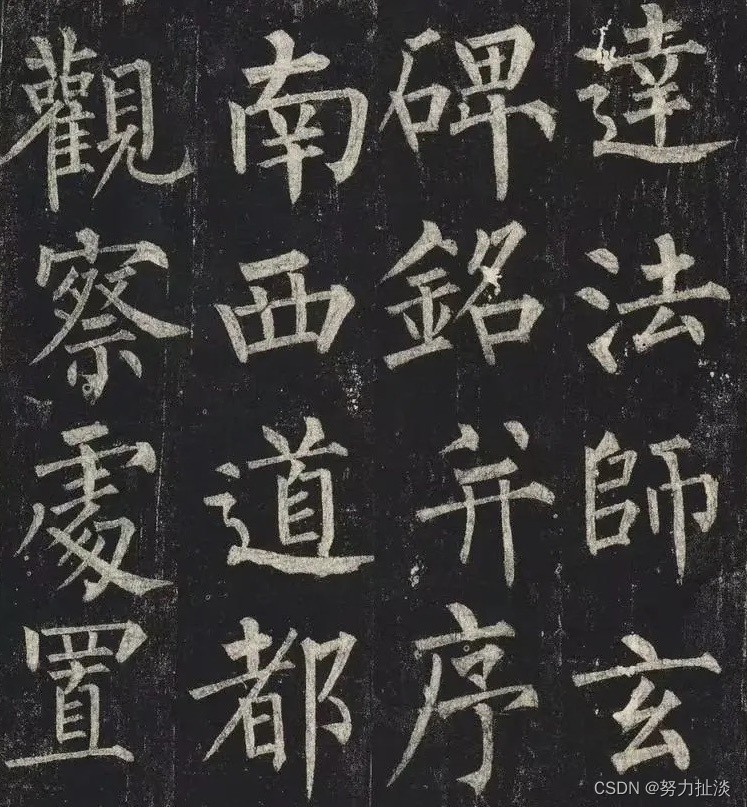 達法師玄
碑銘并序
南西道都
觀察處置
CSDN @努力扯淡